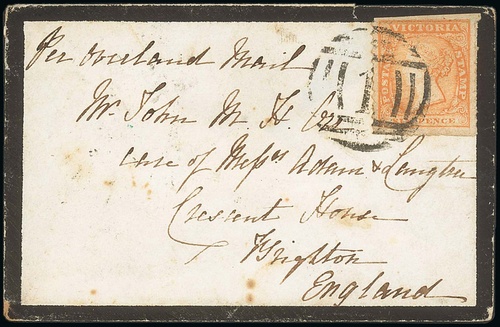 Per overland Mail
Mr John M H Orr
care of Messrs Adam & Langton
Crescent House
Brighton
England
VICTORIA
POSTAGE STAMP
PENCE
1